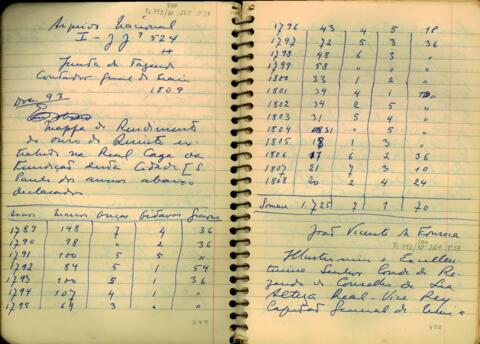 Arquivo Nacional
I-JJ 9 524
Junta da Fazenda
Contador Geral
1809
Doc. 93
Mappa do Rendimento
do ouro do Quinto ex-
trahido na Real Caza da
Fundição desta Cidade [S
Paulo dos annos abaixo
declarados
Annos Marcos Onças Oitavas Graons
1789 148 7 4 36
1790 98 " 2 36
1791 100 5 5 "
1792 84 5 1 54
1793 100 5 1 36
1794 107 4 1 "
1795 64 3 " "
1796 43 4 5 18
1797 72 5 3 36
1798 48 6 3 "
1799 58 " " "
1800 33 1 2 "
1801 34 4 1
1802 34 2 5 "
1803 31 5 4 "
1804 31 " 5 "
1805 18 1 3 "
1806 17 6 2 36
1807 21 7 3 10
1808 20 2 4 24
Somma 1.725 7 1 70
João Vicente da Fonseca
Illustrissimo e Excellen-
tissimo Senhor Conde de Re-
zende do Conselho de Sua
Alteza Real - Vice Rey
Capitão General de